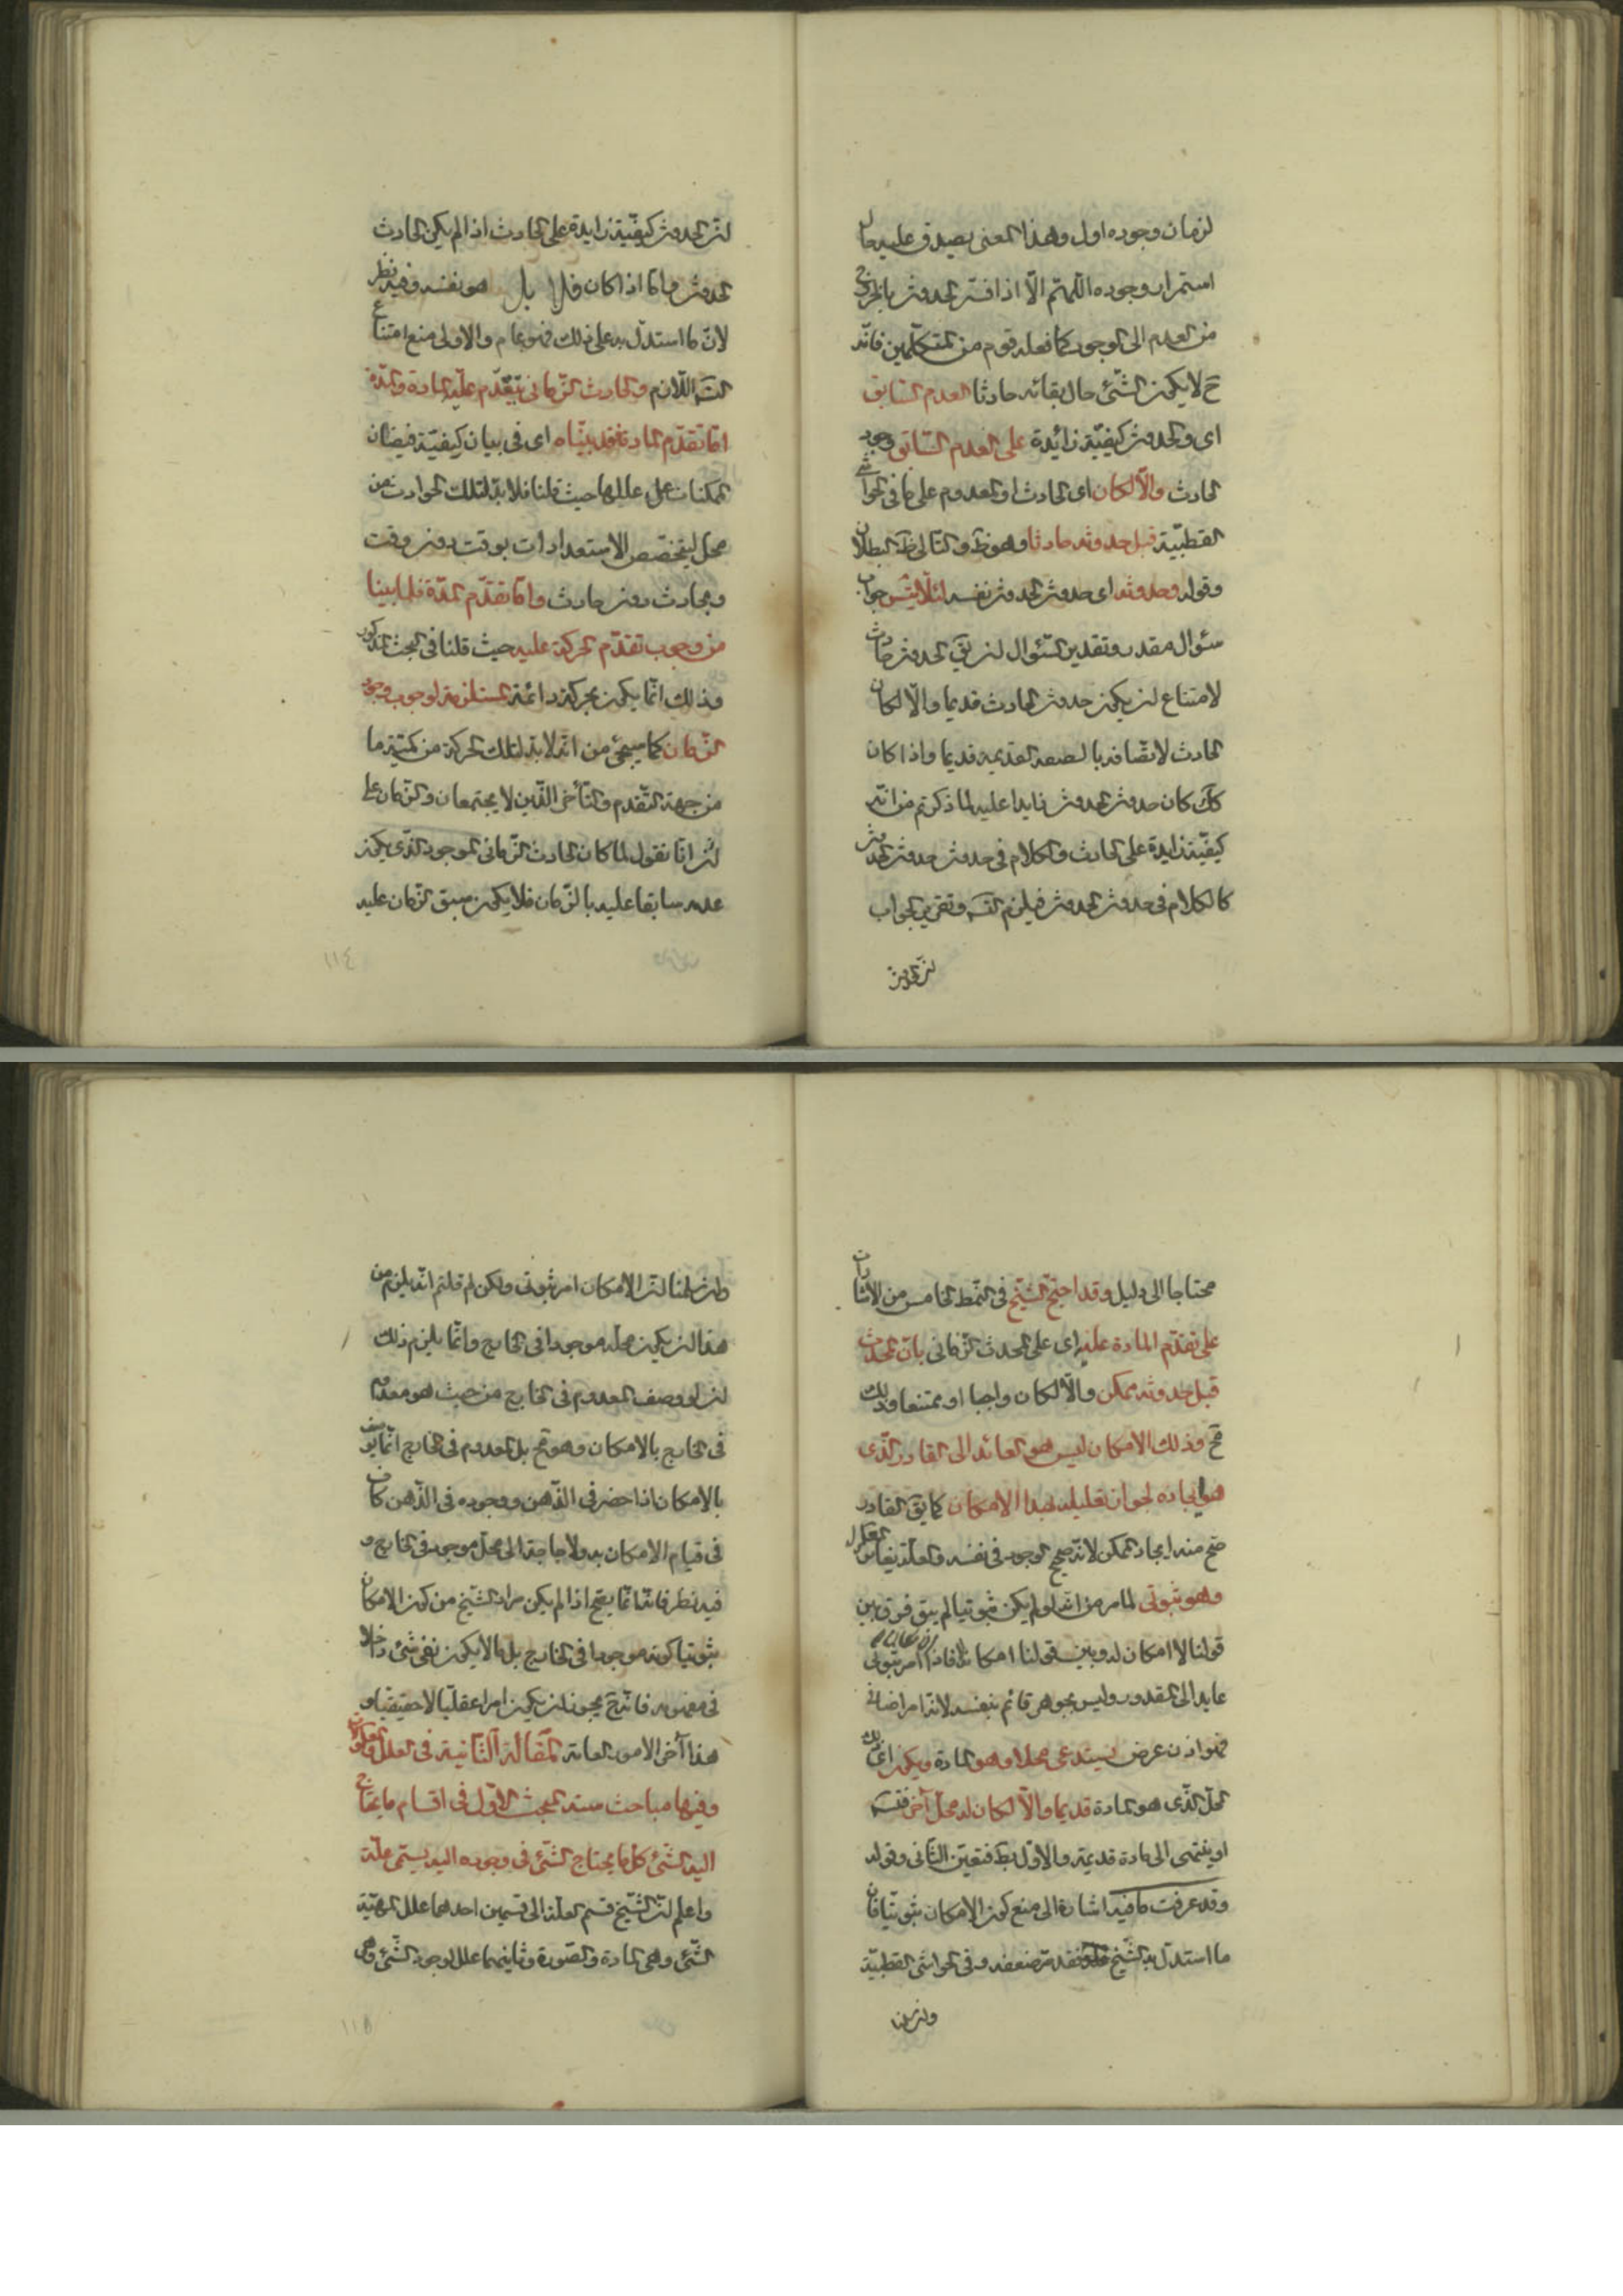 لزمان وجوده اول وهذا المعنى يصدق عليه حال
استمرار وجوده اللهم الا اذا فسر الحدوث بالخروج
من العدم الى الوجود كما فعله قوم من المتكلمين فانه
ح لا يكون الشئ حال بقائه حادثا العدم السابق
اى والحدوث كيفية زائدة على العدم السابق ووجود
الحادث والا لكان اى الحادث او المعدوم على ما فى الحواشى
القطبية قبل حدوثه حادثا وهو ظ والتالى ظ البطلان
وقوله وحدوثه اى حدوث الحدوث نفسه لئلا يتس جواب
سئوال مقدر وتقدير السئوال ان يق الحدوث حادث
لامتناع ان يكون حدوث الحادث قديما والا لكان
الحادث لاتصافه بالصفة القديمة قديما واذا كان
كك كان حدوث الحدوث زايدا عليه لما ذكرتم من انه
كيفية زايدة على الحادث والكلام فى حدوث حدوث الحدوث
كالكلام فى حدوث الحدوث فيلزم التس وتقرير الجواب
ان الحدوث
ان الحدوث كيفية زايدة على الحادث اذا لم يكن الحادث
الحدوث واما اذا كان فلا بل هو نفسه وفيه نظر
لان ما استدل به على ذلك فهو عام والاولى منع امتناع
التس اللازم والحادث الزمانى يتقدم عليه المادة والمدة
اما تقدم المادة فقد بيناه اى فى بيان كيفية فيضان
الممكنات عن عللها حيث قلنا فلا بد لتلك الحوادث من
محل ليتخصص الاستعدادات بوقت دون وقت
وبحادث دون حادث واما تقدم المدة فلما بينا
من وجوب تقدم الحركة عليه حيث قلنا فى البحث المذكور
وذلك انما يكون بحركة دائمة المستلزمة لوجوب وجود
الزمان كما سيجئ من انه لا بد لتلك الحركة من كمية ما
من جهة التقدم والتأخر اللذين لا يجتمعان والزمان على
ان انا نقول لما كان الحادث الزمانى الموجود الذى يكون
عدمه سابقا عليه بالزمان فلا يكون سبق الزمان عليه
١١٤
محتاجا الى دليل وقد احتج الشيخ فى النمط الخامس من الاشارات
على تقدم المادة عليه اى على المحدث الزمانى بان المحدث
قبل حدوثه ممكن والا لكان واجبا او ممتنعا وذلك
مح وذلك الامكان ليس هو العائد الى القادر الذى
هو ايجاده لجواز تعليله بهذا الامكان كما يق القادر
صح منه ايجاد الممكن لانه صحيح الوجود فى نفسه والعلة يغاير المعلول
وهو ثبوتى لما مر من انه لو لم يكن ثبوتيا لم يبق فرق بين
قولنا لا امكان له وبين قولنا امكانه لا فاذا امر ثبوتى
عايد الى المقدور وليس بجوهر قائم بنفسه لانه امر اضافى
فهو اذن عرض يستدعى محلا وهو المادة ويكون اى ذلك
المحل الذى هو المادة قديما والا لكان له محل آخر فتس
او ينتهى الى مادة قديمة والاول بط فتعين الثانى وقوله
وقد عرفت ما فيه اشارة الى منع كون الامكان ثبوتيا فان
ما استدل به الشيخ فقد مر ضعفه وفى الحواشى القطبية
وان سلمنا
وان سلمنا ان الامكان امر ثبوتى ولكن لم قلتم انه يلزم من
هذا ان يكون محله موجودا فى الخارج وانما يلزم ذلك
ان لو وصف المعدوم فى الخارج من حيث هو معدوم
فى الخارج بالامكان وهو مح بل المعدوم فى الخارج انما يوصف
بالامكان اذا حضر فى الذهن ووجوده فى الذهن كاف
فى قيام الامكان به ولا حاجة الى محل موجود فى الخارج و
فيه نظر فانه انما يصح اذا لم يكن مراد الشيخ من كون الامكان
ثبوتيا كونه موجودا فى الخارج بل ما لا يكون نفى شئ داخلا
فى مفهومه فانه ح يجوز ان يكون امرا عقليا لا حقيقيا و
هذا آخر الامور العامة المقالة الثانية فى العلل والمعلولات
وفيها مباحث ستة المبحث الاول فى اقسام ما يحتاج
اليه الشئ كل ما يحتاج الشئ فى وجوده اليه يسمى علة
واعلم ان الشيخ قسم العلة الى قسمين احدهما علل المهية
الشئ وهى المادة والصورة وثانيهما علل لوجود الشئ وهى
١١٥